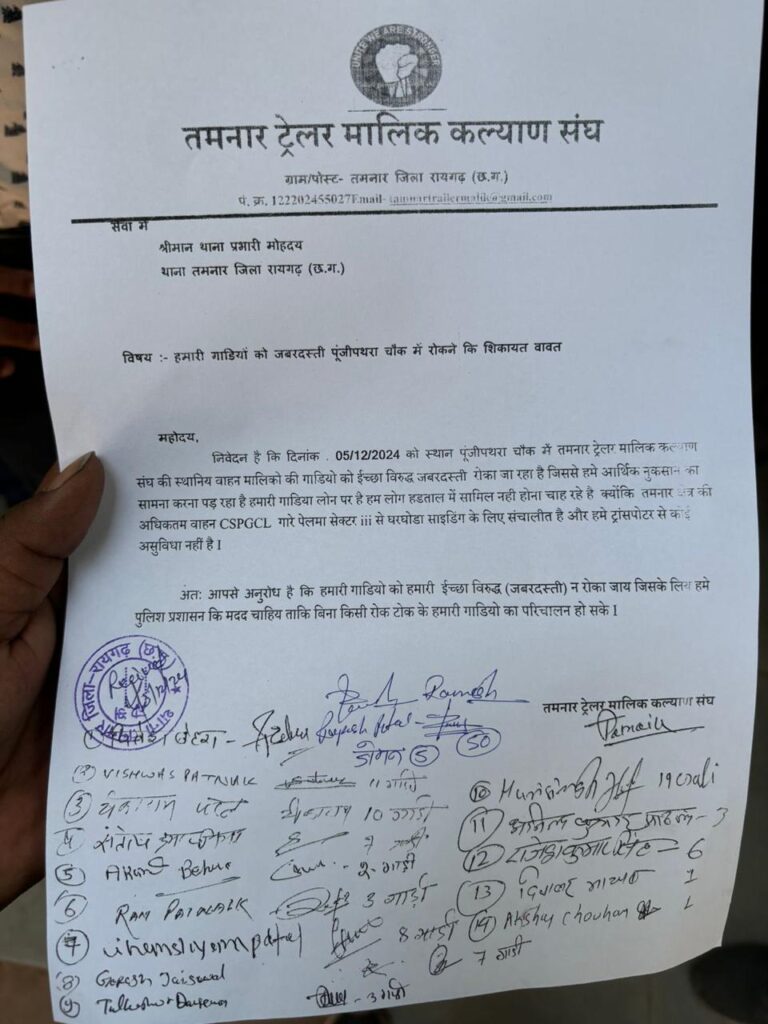 UNITED WE ARE STRONGER
तमनार ट्रेलर मालिक कल्याण संघ
ग्राम/पोस्ट- तमनार जिला रायगढ़ (छ.ग.)
पं. क्र. 122202455027Email- tamnartrailermalik@gmail.com
सेवा में
श्रीमान थाना प्रभारी मोहदय
थाना तमनार जिला रायगढ़ (छ.ग.)
विषय :- हमारी गाडियों को जबरदस्ती पूंजीपथरा चौक में रोकने कि शिकायत वावत
महोदय,
निवेदन है कि दिनांक . 05/12/2024 को स्थान पूंजीपथरा चौक में तमनार ट्रेलर मालिक कल्याण
संघ की स्थानिय वाहन मालिको की गाडियो को ईच्छा विरुद्ध जबरदस्ती रोका जा रहा है जिससे हमे आर्थिक नुकसान का
सामना करना पड़ रहा है हमारी गाडिया लोन पर है हम लोग हडताल में सामिल नही होना चाह रहे है क्योंकि तमनार क्षेत्र की
अधिकतम वाहन CSPGCL गारे पेलमा सेक्टर iii से घरघोडा साइडिंग के लिए संचालीत है और हमे ट्रांसपोटर से कोई
असुविधा नहीं है I
अतः आपसे अनुरोध है कि हमारी गाडियो को हमारी ईच्छा विरुद्ध (जबरदस्ती) न रोका जाय जिसके लिय हमे
पुलिश प्रशासन कि मदद चाहिय ताकि बिना किसी रोक टोक के हमारी गाडियो का परिचालन हो सके I
जिला-रायगढ़ (छ.ग.)
Received
तमनार ट्रेलर मालिक कल्याण संघ
Ramesh
5 50
(2) VISHWAS PATNAIK 11 गाड़ी
(3) 10 गाड़ी
4 7 गाड़ी
(5) Behra 2 - गाड़ी
6 RAM PATNAIK 3 गाड़ी
(7) 8 गाड़ी
(8) Ganesh Jaiswal 7 गाड़ी
(9) - 3 गाड़ी
(10)
(11) - 3
(12) - 6
(13) 1
(14) Akshay Chouhan 1